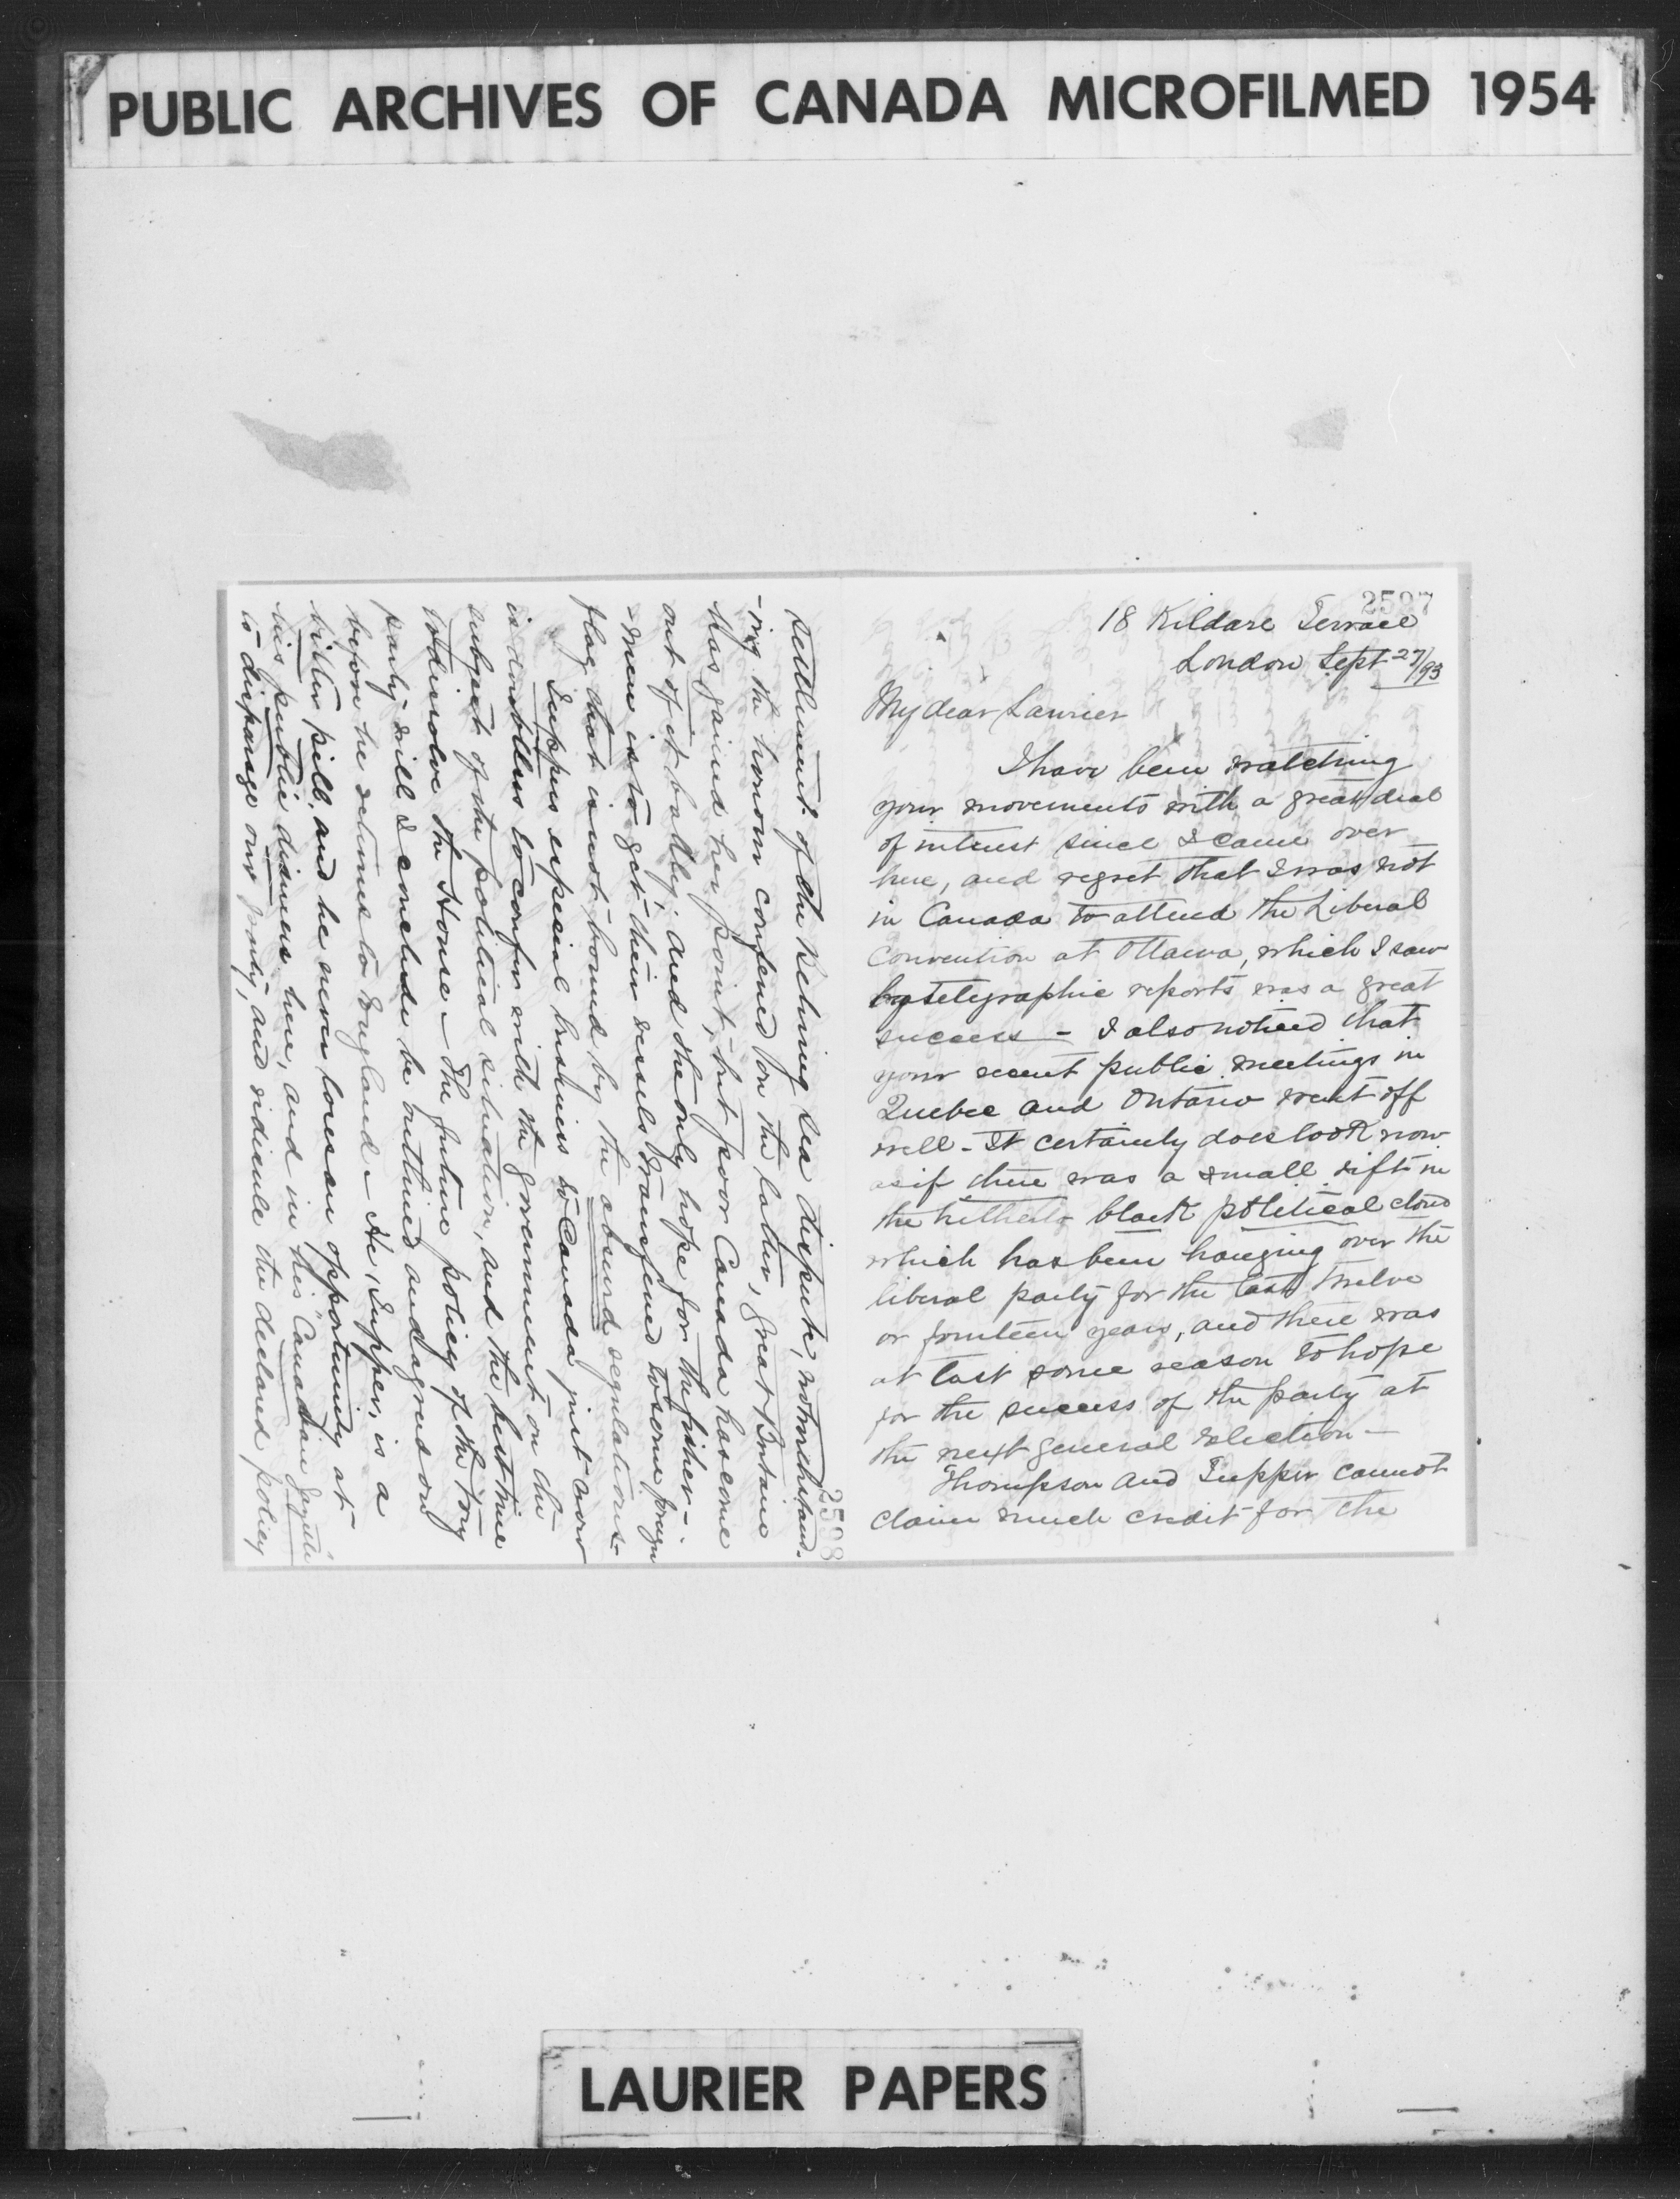 PUBLIC ARCHIVES OF CANADA MICROFILMED 1954
2597
18 Kildare Terrace
London Sept 27/93
My dear Laurier
I have been watching
your movements with a great deal
of interest since I came over
here, and regret that I was not
in Canada to attend the Liberal
Convention at Ottawa, which I saw
by telegraphic reports was a great
success - I also noticed that
your recent public meetings in
Quebec and Ontario went off
well - It certainly does look now
as if there was a small rift in
the hitherto black political cloud
which has been hanging over the
liberal party for the last twelve
or fourteen years, and there was
at last some reason to hope
for the success of the party at
the next general election -
Thompson and Tupper cannot
claim much credit for the
2598
settlement of the Behring Sea dispute, notwithstand-
-ing the honour conferred on the latter, Great Britain
has gained her point, but poor Canada has come
out of it badly; and the only hope for the fisher-
-men is to get their vessels transferred to some foreign
flag that is not bound by the absurd regulations -
Tuppers especial business to Canada just now
is doubtless to confer with the government on the
subject of the political situation, and the best time
to dissolve the House - The future policy of the Tory
party will I conclude be outlined and agreed on
before he returns to England - He, Tupper, is a
bitter pill, and he never loses an opportunity at
his public dinners here, and in his "Canadian Gazette"
to disparage our party, and ridicule the declared policy
LAURIER PAPERS